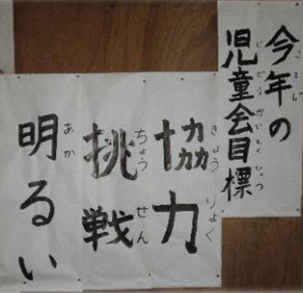 今年の
児童会目標
協力
挑戦
明るい